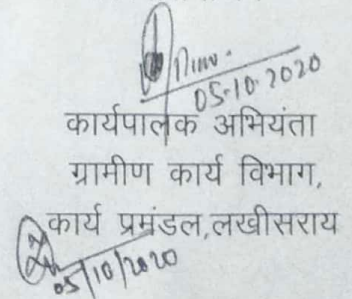 05-10-2020
कार्यपालक अभियंता
ग्रामीण कार्य विभाग,
कार्य प्रमंडल,लखीसराय
05/10/2020